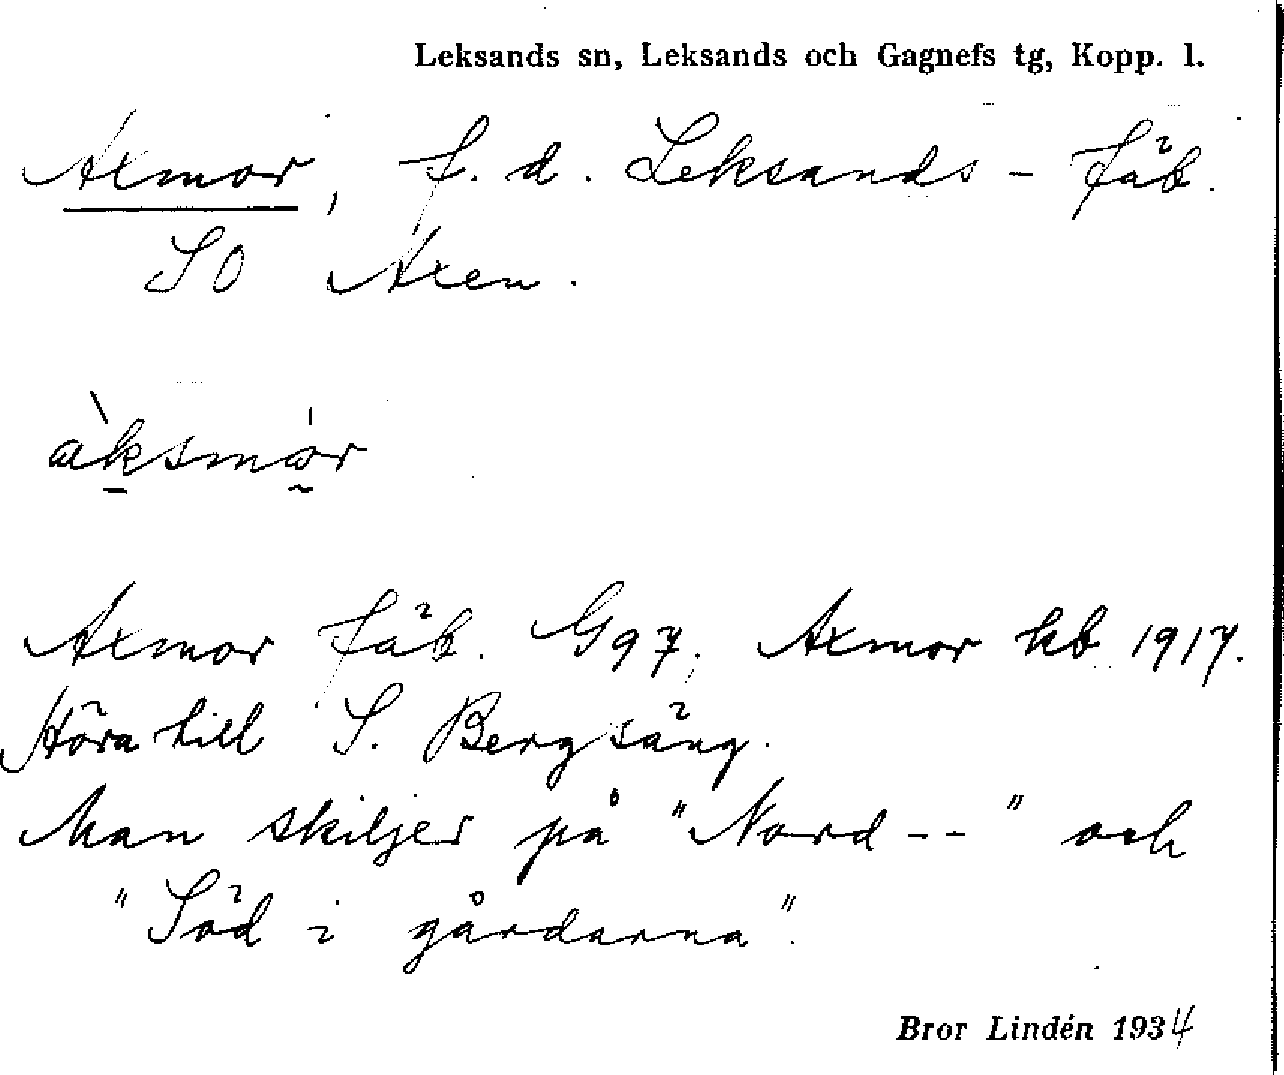 Leksands sn, Leksands och Gagnefs tg, Kopp. l.
Axmor, f. d. Leksands-fäb.
SO Axen.
àksmór
Axmor fäb. G97. Axmor kb 1917.
Höra till S. Bergsäng.
Man skiljer på "Nord--" och
"Söd i gårdarna".
Bror Lindén 1934